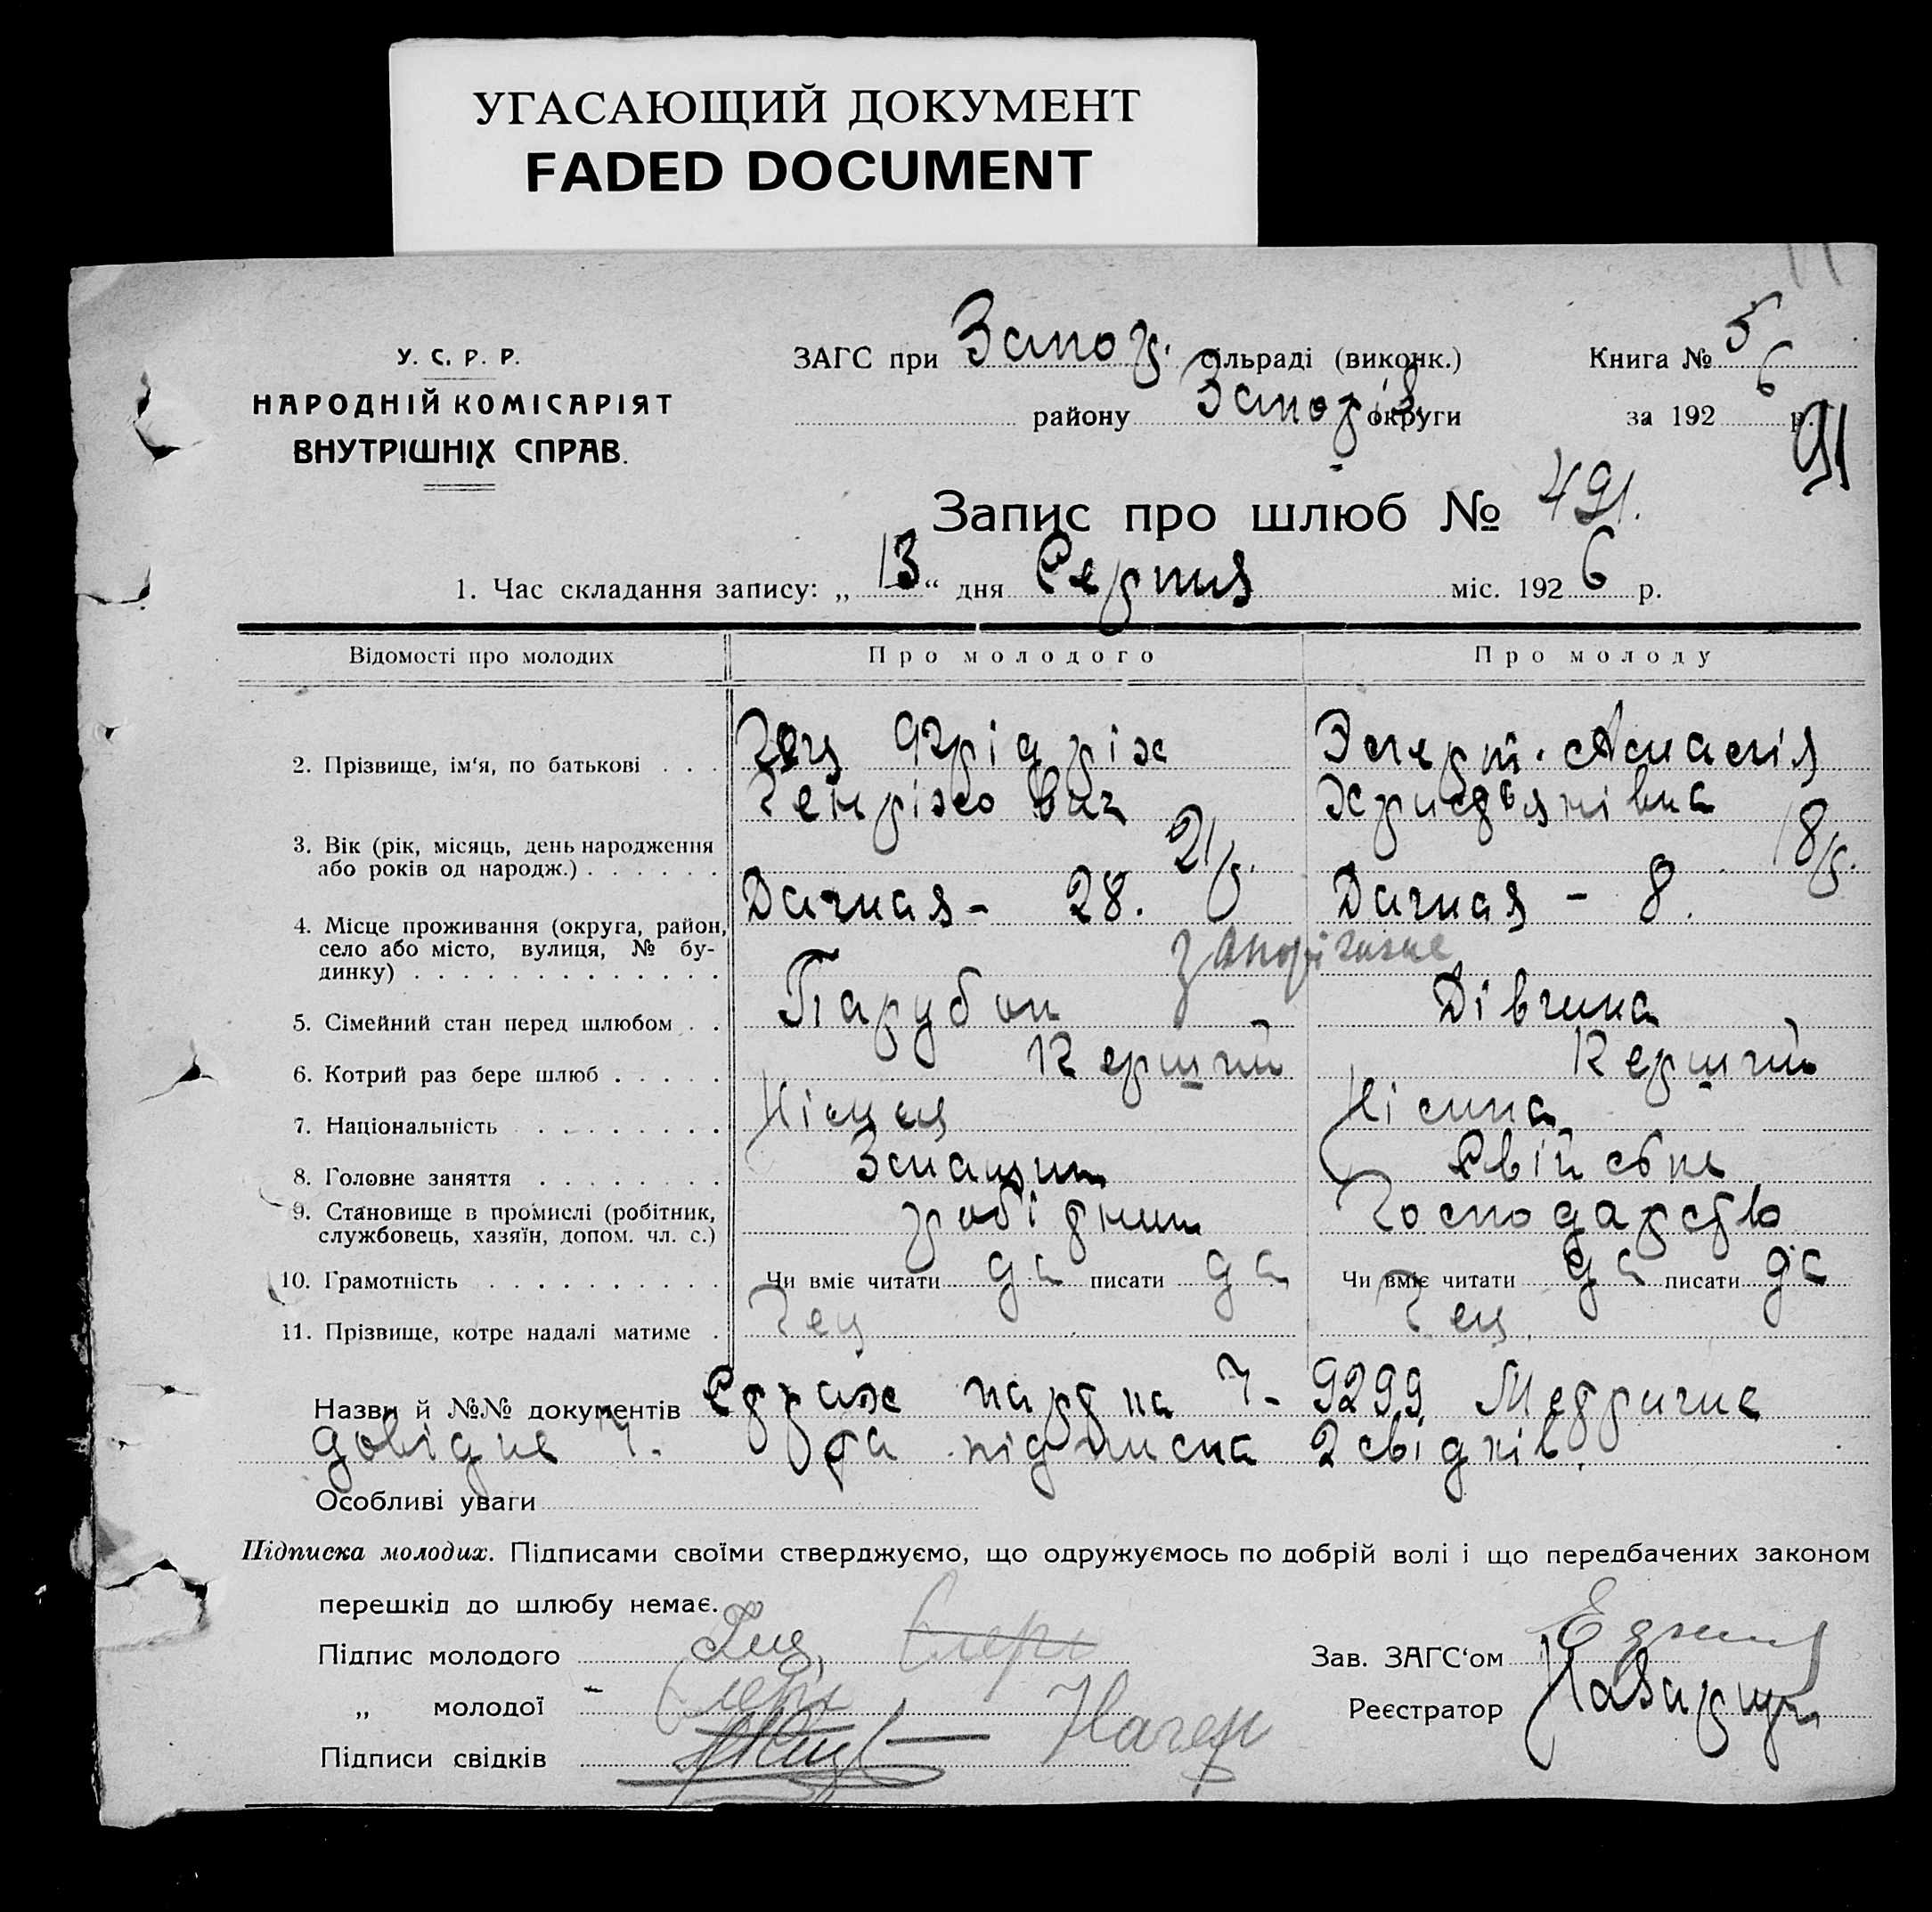 УГАСАЮЩИЙ ДОКУМЕНТ
FADED DOCUMENT
У. С. Р. Р.
НАРОДНІЙ КОМІСАРІЯТ
ВНУТРІШНІХ СПРАВ.
ЗАГС при Запоз. сільраді (виконк.)
району Запоріз. округи
Книга № 5
за 1926 р.
91
Запис про шлюб № 491.
1. Час складання запису: „13“ дня Серпня міс. 1926 р.
Відомості про молодих Про молодого Про молоду
2. Прізвище, ім‘я, по батькові . . . Гец Фрідріх
Генріхович
3. Вік (рік, місяць, день народження
або років од народж.) . . . . . . 21 р. 18 р.
4. Місце проживання (округа, район, Дачная - 28. Дачная - 8.
село або місто, вулиця, № бу-
динку) . . . . . . . . . . . . . Запоріжже
5. Сімейний стан перед шлюбом . . Парубок Дівчина
6. Котрий раз бере шлюб . . . . . Перший Перший
7. Національність . . . . . . . . Німець Німка
8. Головне заняття . . . . . . . . Свійське
9. Становище в промислі (робітник, робітник Господарство
службовець, хазяїн, допом. чл. с.)
10. Грамотність . . . . . . . . . . Чи вміє читати да писати да Чи вміє читати да писати да
11. Прізвище, котре надалі матиме . Гец Гец.
Назви й №№ документів Страх картка Ч- 9299 Метричне
довідне Ч. та підписка 2 свідків.
Особливі уваги
Підписка молодих. Підписами своїми стверджуємо, що одружуємось по добрій волі і що передбачених законом
перешкід до шлюбу немає.
Підпис молодого Гец
„ молодої
Підписи свідків
Зав. ЗАГС‘ом
Реєстратор